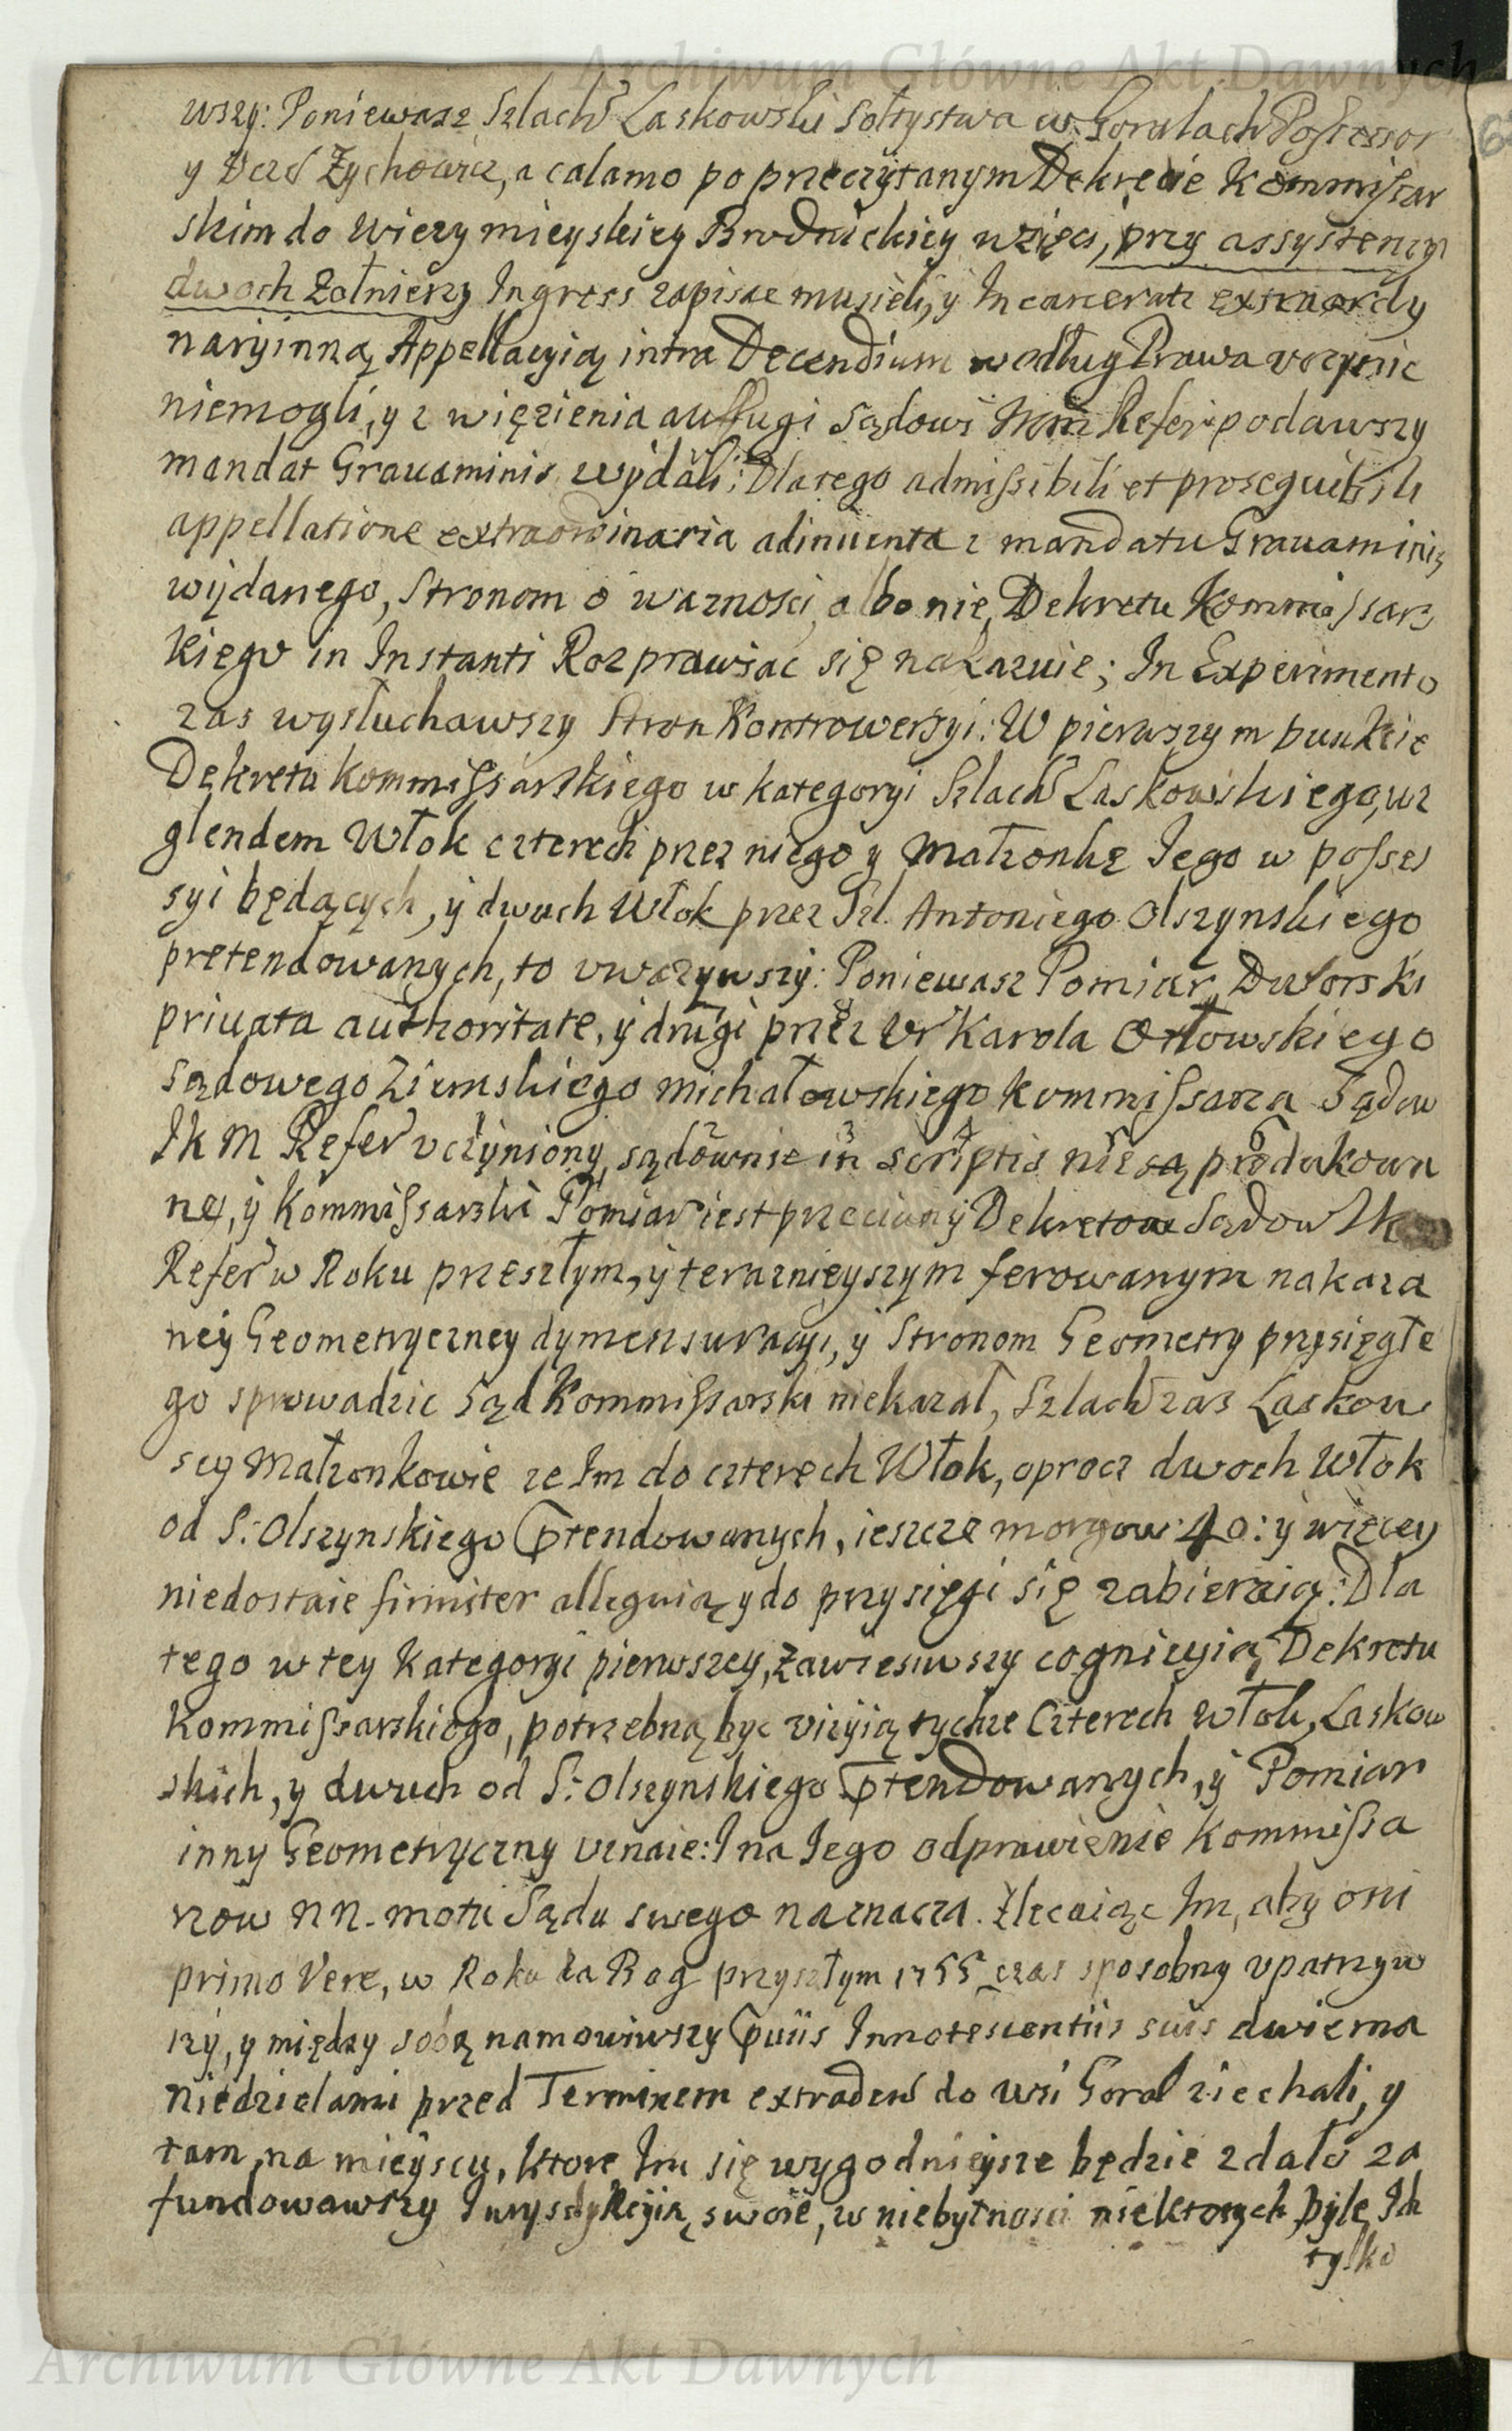 Archiwum Główne Akt Dawnych
wszy: Poniewasz Szlach Laskowski Sołtystwa w Goralach Possessor
y Zychowicz, a calamo po przeczytanym Dekrecie Kommissar
skim do Wiezy mieyskiey Brodnickiey wzięci, przy assystencyi
dwoch Zołnierzy Ingress zapisac musieli, y Incarcerati extraordy
naryinną Appellacyią intra Decendium według Prawa vczynic
niemogli, y z więzienia auffugi Sądowi Refer podawszy
mandat Grauaminis wydali: Dlatego admissibili et prosequibili
appellatione extraordinaria adinuenta z mandatu Grauaminis
wydanego, Stronom o waznosci, albo nie, Dekretu Kommissars
kiego in Instanti Rozprawiac się nakazuie; In Experimento
zas wysłuchawszy Stron Kontrowersyi: W pierwszym punkcie
Dekretu Kommissarskiego w kategoryi Szlach Laskowskiego, wz
glendem Włok czterech przez niego y Małzonkę Jego w posses
syi będących, y dwuch Włok przez Szl. Antoniego Olszynskiego
pretendowanych, to vwazywszy: Poniewasz Pomiar, Dworski
priuata authoritate, y drugi przez Vr Karola Orłowskiego
Sądowego Ziemskiego Michałowskiego Kommissarza Sądow
JKM Refer vczyniony, sądownie in scriptis nie są produkowa
ne, y Kommissarski Pomiar iest przeciwny Dekretow Sądow JK
Refer w Roku przeszłym, y teraznieyszym ferowanym nakaza
ney Geometryczney dymensuracyi, y Stronom Geometry przysięgłe
go sprowadzic Sąd Kommissarski niekazał, Szlach zas Laskow
scy Małzonkowie ze Im do czterech Włok, oprocz dwoch Włok
od S: Olszynskiego ptendowanych, ieszcze morgow 40: y więcey
niedostaie firmiter alleguią y do przysięgi się zabieraią: Dla
tego w tey Kategoryi pierwszey, zawiesiwszy cognicyią Dekretu
Kommissarskiego, potrzebną byc vizyią tychze Czterech Włok, Laskow
skich, y dwuch od S: Olszynskiego ptendowanych, y Pomiar
inny Geometryczny vznaie: I na Jego odprawienie Kommissa
rzow NN. motu Sądu swego naznacza. Zlecaiąc Im, aby oni
primo Vere, w Roku da Bog przyszłym 1755 czas sposobny vpatrzyw
szy, y między sobą namowiwszy pviis Innotescentiis suis dwiema
niedzielami przed Terminem extraden do wsi Goral ziechali, y
tam na mieyscu, ktore Im się wygodnieysze będzie zdało za
fundowawszy Jurysdykcyią swoie, w niebytnosci niektorych, byle Ich
tylko
Archiwum Główne Akt Dawnych